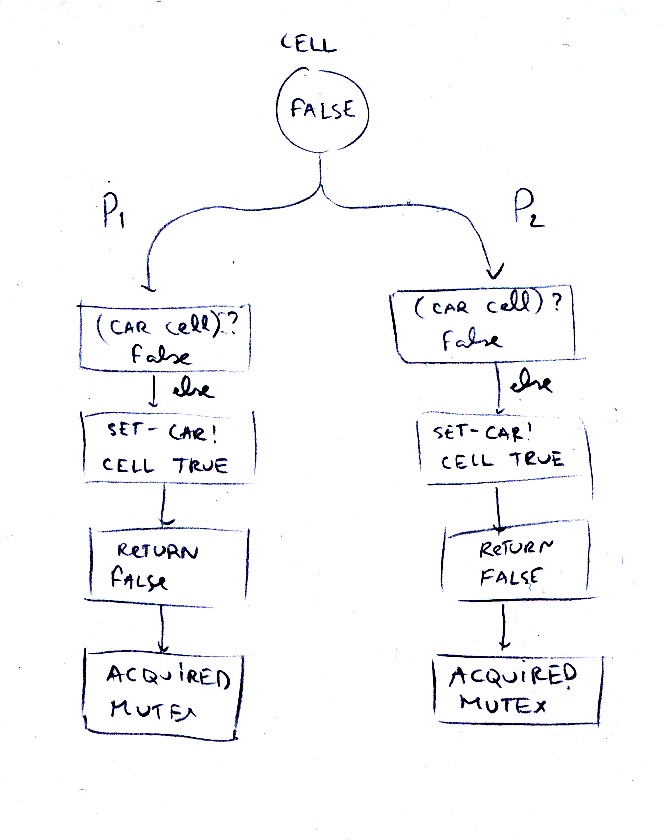 CELL
FALSE
P1
(CAR Cell)?
False
else
SET-CAR!
CELL TRUE
RETURN
FALSE
ACQUIRED
MUTEX
P2
(CAR Cell)?
False
else
SET-CAR!
CELL TRUE
RETURN
FALSE
ACQUIRED
MUTEX